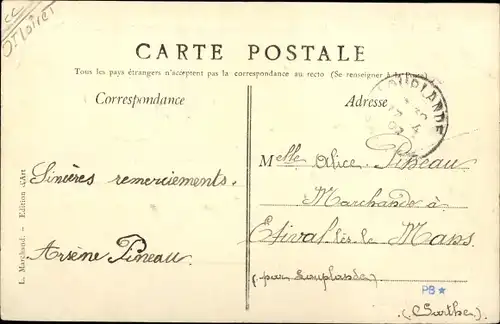 cc
Dt Loiret
CARTE POSTALE
Tous les pays étrangers n'acceptent pas la correspondance au recto (Se renseigner à la Poste)
Correspondance
Adresse
LOUPLANDE
Sincères remerciements.
Arsène Pineau.
Melle Alice Pineau
Marchande à
Etival lès le Mans
(par Louplande)
(Sarthe)
PB★
L. Marchand. — Edition d'Art